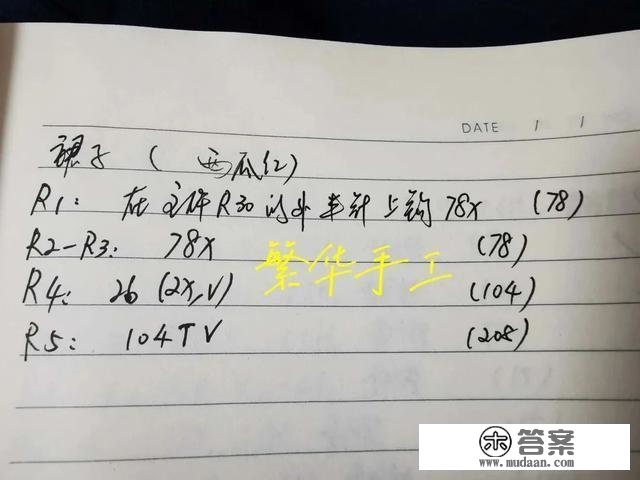 DATE / /
裙子 ( 西瓜红)
R1: 在主体R30的外半针上钩78X (78)
R2-R3: 78X (78)
繁华手工
R4: 26 (2X,V) (104)
R5: 104TV (208)
答案
www.mudaan.com